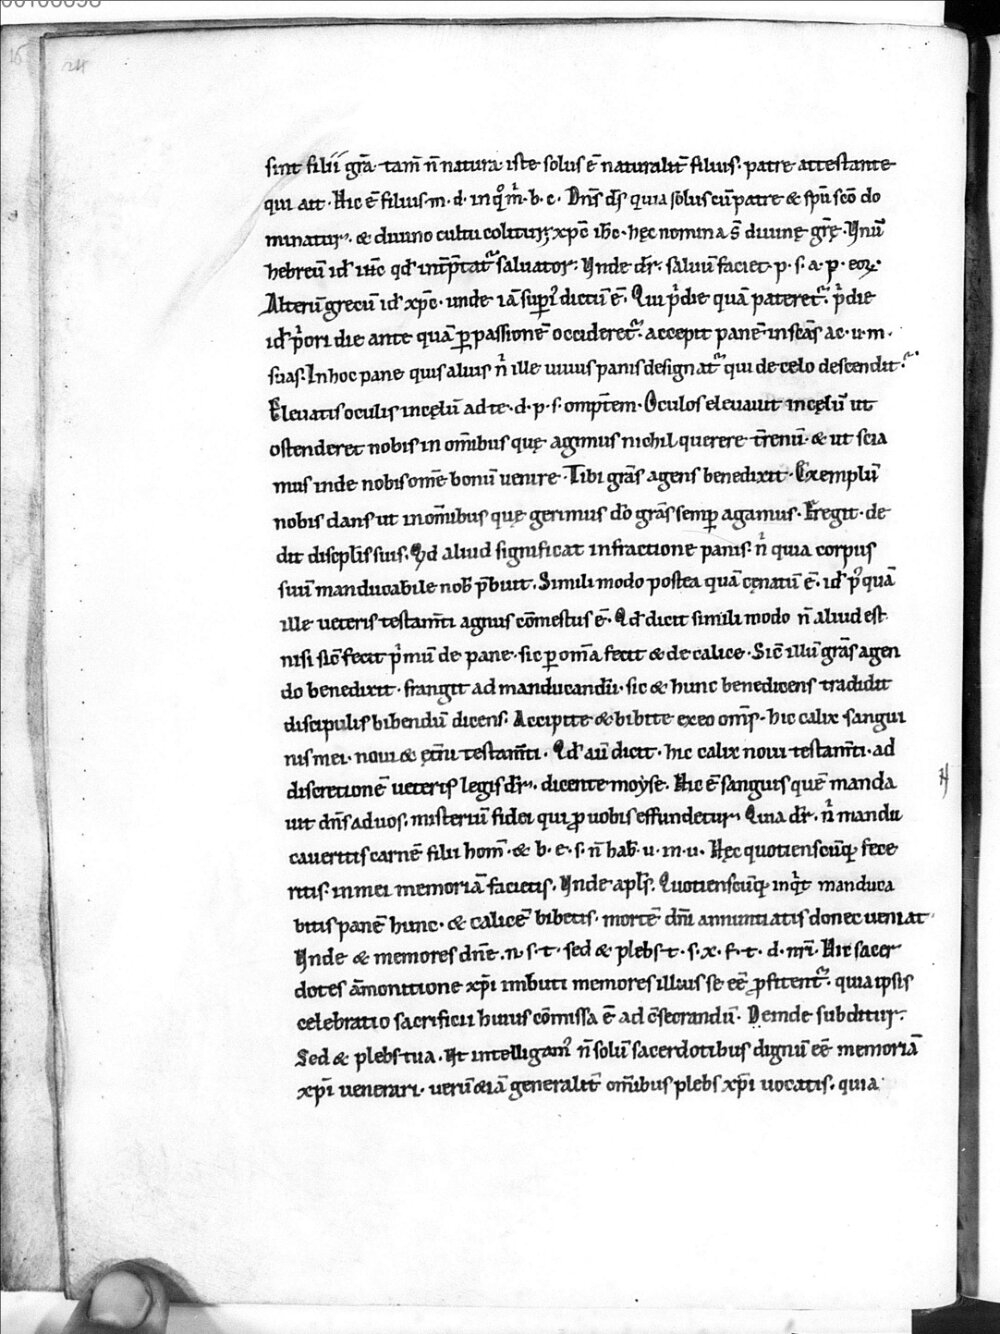 sint filii gr̄a. tam̄ n̄ natura. iste solus ē naturalit̄ filius. patre attestante
qui ait. Hic ē filius. m. d. in qͦ m̄. b. c. Dn̄s dr̄ quia solus cū patre & sp̄u sc̄o do
minatur. & diuino cultu colitur. xp̄c ih̄c. hęc nomina s̄ diuinę gr̄ę. Vnū
hebreū id ihc qd̄ int̄p̄tat᷑ saluator. Vnde dr̄. saluū faciet. p. s. a. p. eoꝝ.
Alterū grecū id xp̄c. unde iā suꝑ dictū ē. Qui p̄die quā pateret᷑. p̄die
id p̄ori die ante quā ꝑ passionē occideret᷑. accepit panē in sc̄as ac. u. m.
suas. In hoc pane quis alius n̄ ille uiuus panis designat᷑ qui de celo descendit.
Eleuatis oculis in cęlū ad te. d. p. s. omp̄tem. Oculos eleuauit in cęlū ut
ostenderet nobis in om̄ibus quę agimus nichil querere t̄renū. & ut scia
mus inde nobis om̄e bonū uenire. Tibi gr̄as agens benedixit. Exemplū
nobis dans ut in om̄ibus quę gerimus dō gr̄as semꝑ agamus. Fregit. de
dit discplis suis. Qd aliud significat in fractione panis. n̄ quia corpus
suū manducabile nob̄ p̄buit. Simili modo postea quā cęnatū ē. id pꝰquā
ille ueteris testam̄ti agnus cōmestus ē. Qd̄ dicit simili modo n̄ aliud est
nisi sic̄ fecit p̄mū de pane. sic ꝑ om̄a fecit & de calice. Sic̄ illū gr̄as agen
do benedixit. frangit ad manducandū. sic & hunc benedicens tradidit
discipulis bibendū dicens. Accipite & bibite ex eo om̄s. hic calix sangui
nis mei. noui & et̄ni testam̄ti. Qd̄ aū dicit. hic calix noui testam̄ti. ad
discretionē ueteris legis dr̄. dicente moyse. Hic ē sanguis quē manda
uit dn̄s ad uos. misteriū fidei qui ꝓ uobis effundetur. Quia dr̄. n̄ mandu
caueritis carnē filii hom̄. & b. e. s. n̄ hab̄. u. m. u. Hęc quotienscūq; fece
ritis. in mei memoriā facietis. Vnde apl̄s. Quotienscūq; inqͥt manduca
bitis panē hunc. & calicē bibetis. mortē dn̄i annuntiatis donec ueniat.
Vnde & memores dn̄e. n. s. t. sed & plebs. t. s. x. f. t. d. nr̄i. Hic sacer
dotes āmonitione xp̄i imbuti memores illius se eē ꝓfitent᷑. quia ipsis
celebratio sacrificii huius cōmissa ē ad c̄secrandū. Deinde subditur.
Sed & plebs tua. Vt intelligamꝰ n̄ solū sacerdotibus dignū eē memoriā
xp̄i uenerari. uerū & iā generalit̄ om̄ibus plebs xp̄i uocatis. quia